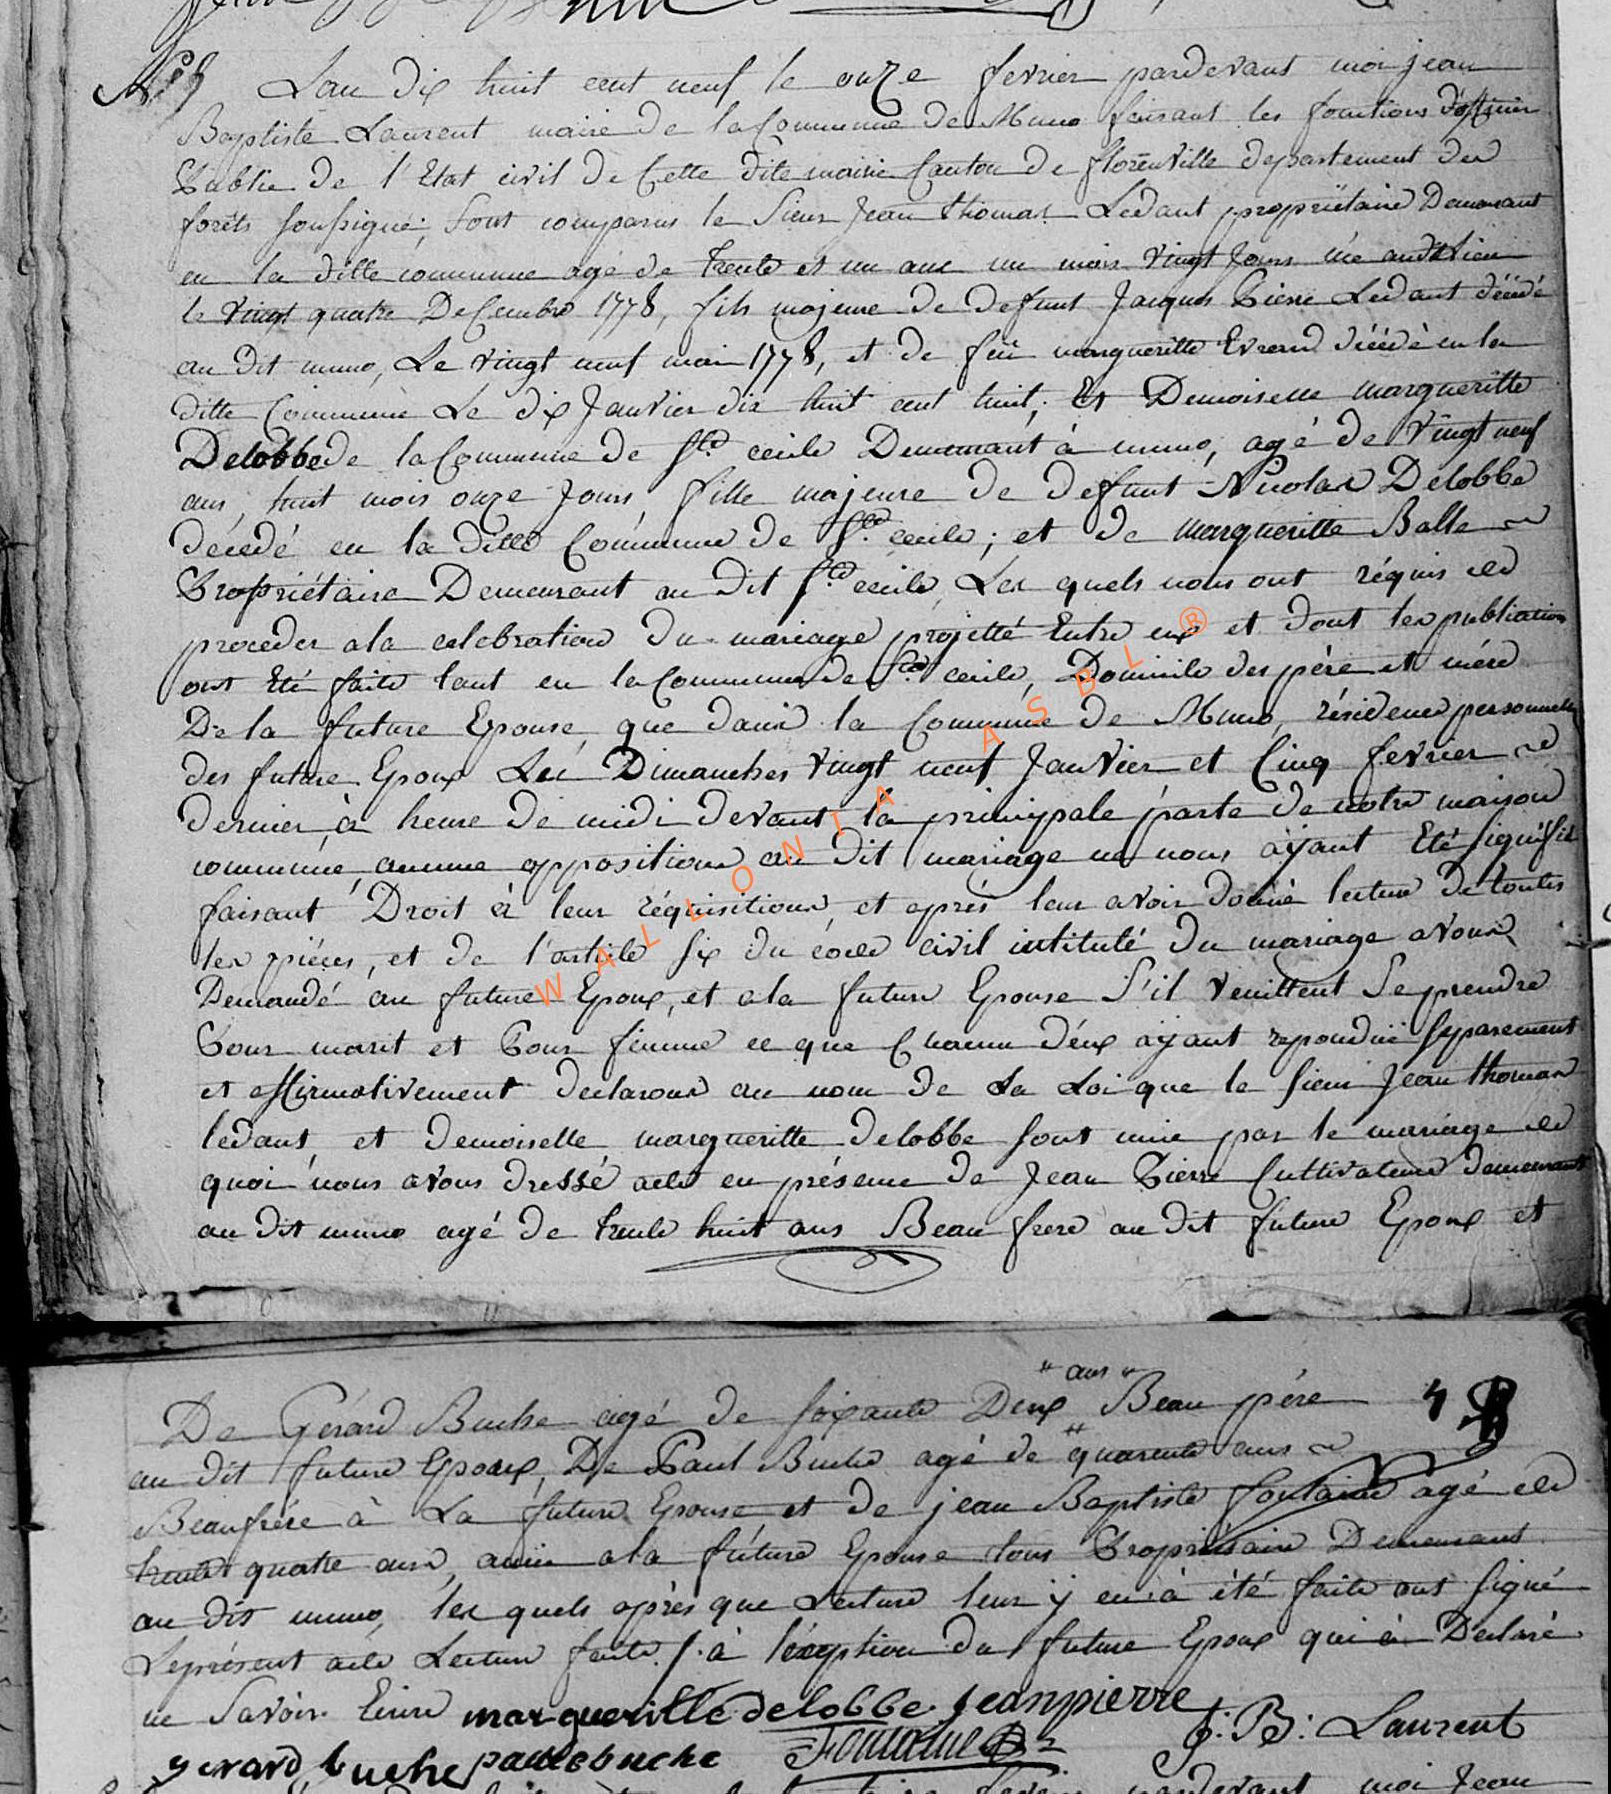 N° 5
Lan dix huit cent neuf le onze fevrier pardevant moi jean
Baptiste Laurent maire de la Commune de Muno faisant les fonctions d'officier
Public de l'Etat civil de Cette dite mairie Canton de florenville departement des
forêts soussigné; sont comparus le Sieur Jean thomas Ledant proprïétaire Demeurant
en la ditte commune agé de trente et un ans un mois vingt Jours né audit lieu
le vingt quatre Decembre 1778, fils majeure de defunt Jacques Pierre Ledant décédé
au dit muno, Le vingt neuf mai 1778, et de feü margueritte Evrard décédé en la
ditte Commune Le dix Janvier dix huit cent huit; Et Demoiselle margueritte
Delobbe de la Commune de Ste cecile Demeurant à muno, agé de vingt neuf
ans, huit mois onze Jours, fille majeure de defunt Nicolas Delobbe
décedé en la ditte Commune de Ste cecile; et de margueritte Balle
Propriétaire Demeurant au dit Ste cecile, Les quels nous ont réquis de
proceder a la celebration du mariage projetté Entre eux et dont les publication
ont Eté faite tant en la Commune de Ste cecile, Domicile des pére et mére
De la future Epouse, que dans la Commune de Muno, résidence personnelle
des future Epoux Les Dimanches vingt neuf Janvier et Cinq fevrier
dernier, à heure de midi devant la principale parte de notre maison
commune, aucune opposition au dit mariage ne nous ayant Eté signifié
faisant Droit à leur réquisition, et aprés leur avoir donné lecture de toutes
les piéces, et de l'article six du code civil intitulé du mariage avons
Demandé au future Epoux, et a la future Epouse S'il veuillent Se prendre
Pour marit et Pour femme ce que Chacun d'eux ayant repondüe separement
et affirmativement declarons au nom de La Loi que le sieur Jean thomas
ledant, et demoiselle margueritte delobbe sont unie par le mariage de
quoi nous avons dressé acte en présence de Jean Pierre Cultivateur demeurant
au dit muno agé de trente huit ans Beau frere au dit future Epoux et
" ans "
De Gérard Buche agé de soixante Deux Beau pére
au dit future Epoux, De Paul Buche agé de quarente ans
Beaufrére à La future Epouse, et de jean Baptiste fontaine agé de
trente quatre ans, amie a la future Epouse tous Propriétaire Demeurant
au dit muno, les quels aprés que Lecture leur y en à été faite ont signé
Leprésent acte Lecture faite, à l'exeption du future Epoux qui à Declaré
ne Savoir Ecrire margueritte delobbe jeanpierre
J: B: Laurent
gerard buche paule buche Fontaine
moi Jean
WALLONIA ASBL ®